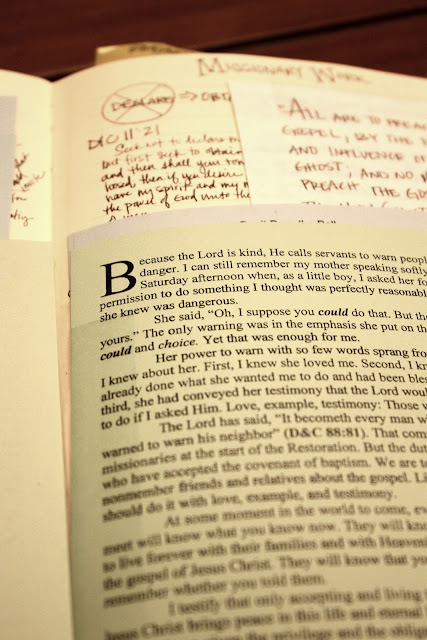 MISSIONARY WORK
DECLARE ⇒ OBT
D&C 11:21
Seek not to declare m
but first seek to obtain
and then shall your ton
loosed, then if you desire
have my spirit and my
the power of God unto the
"ALL ARE TO PREA
GOSPEL, BY THE
AND INFLUENCE O
GHOST; AND NO
PREACH THE GOS
Because the Lord is kind, He calls servants to warn people
danger. I can still remember my mother speaking softly
Saturday afternoon when, as a little boy, I asked her fo
permission to do something I thought was perfectly reasonabl
she knew was dangerous.
She said, "Oh, I suppose you could do that. But the
yours." The only warning was in the emphasis she put on th
could and choice. Yet that was enough for me.
Her power to warn with so few words sprang fro
I knew about her. First, I knew she loved me. Second, I kn
already done what she wanted me to do and had been bles
third, she had conveyed her testimony that the Lord woul
to do if I asked Him. Love, example, testimony: Those w
The Lord has said, "It becometh every man w
warned to warn his neighbor" (D&C 88:81). That com
missionaries at the start of the Restoration. But the dut
who have accepted the covenant of baptism. We are to
nonmember friends and relatives about the gospel. Li
should do it with love, example, and testimony.
At some moment in the world to come, ev
meet will know what you know now. They will kno
to live forever with their families and with Heaven
the gospel of Jesus Christ. They will know that yo
remember whether you told them.
I testify that only accepting and living
Jesus Christ brings peace in this life and eternal
the privileges and the